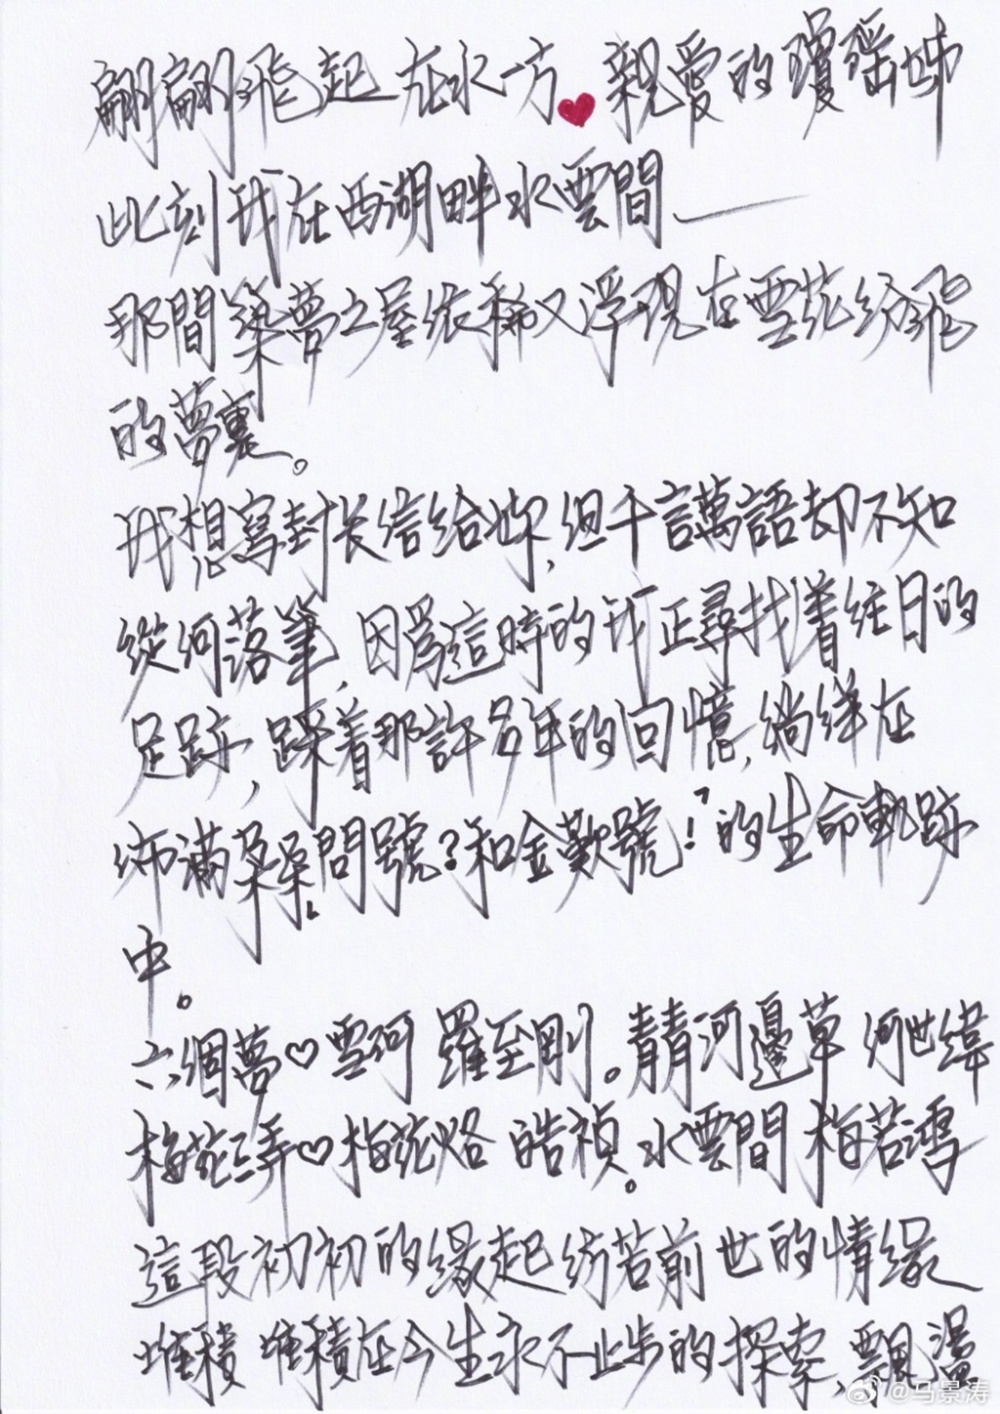 翩翩飛起 在水一方❤親愛的瓊瑤姊
此刻我在西湖畔水雲間——
那間築夢之屋依稀又浮現在雪花紛飛
的夢裏。
我想寫封长信給妳,但千言萬語却不知
從何落筆,因爲這時的我正尋找着往日的
足跡,踩着那許多年的回憶,徜徉在
佈滿朵朵問號?和金歎號!的生命軌跡
中。
六個夢♡雪珂 羅至剛。青青河邊草 何世緯
梅花三弄♡梅花烙 皓禎。水雲間 梅若鴻
這段初初的緣起彷若前世的情緣
堆積 堆積在今生永不止步的探索,飄盪
@马景涛